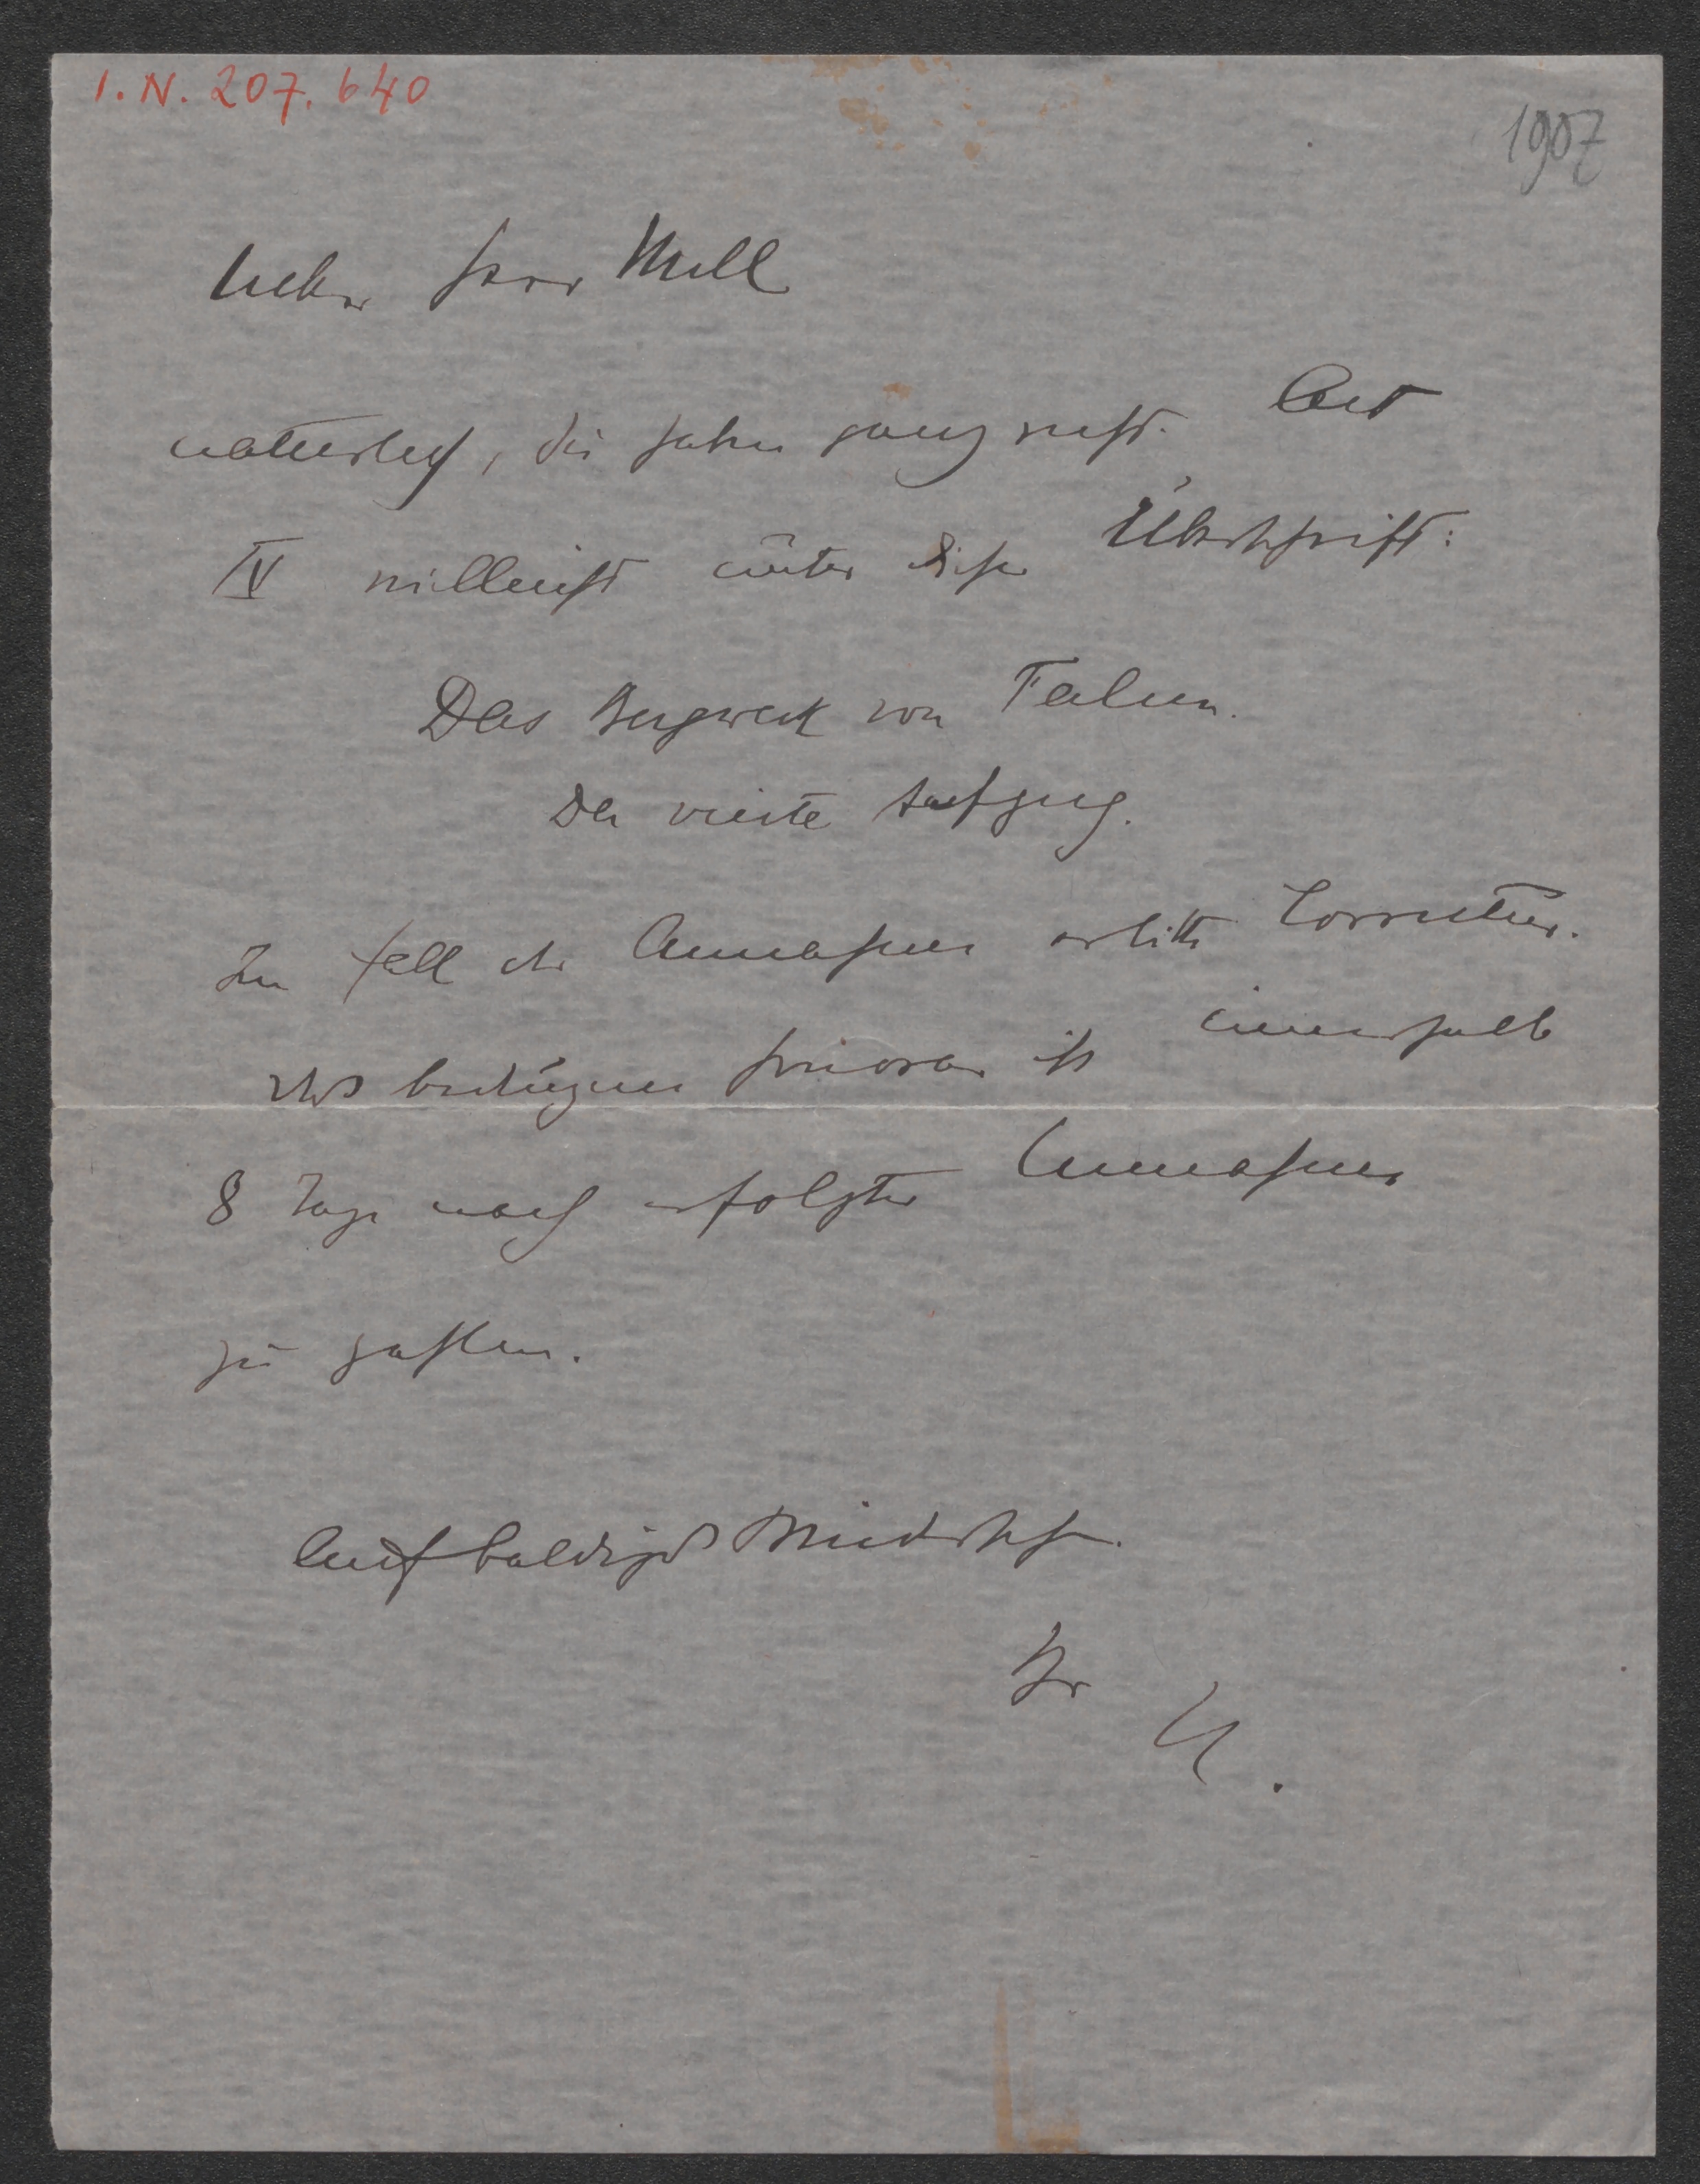 I. N. 207.640
1907
lieber Herr Mell
natürlich, Sie haben ganz recht. Act
IV vielleicht unter dieser Überschrift:
Das Bergwerk von Falun.
Der vierte Aufzug.
Im Fall der Annahme erbitte Correctur.
Das bedungene Honorar ist innerhalb
8 Tage nach erfolgter Annahme
zu zahlen.
Auf baldiges Wiedersehen.
Ihr
H.